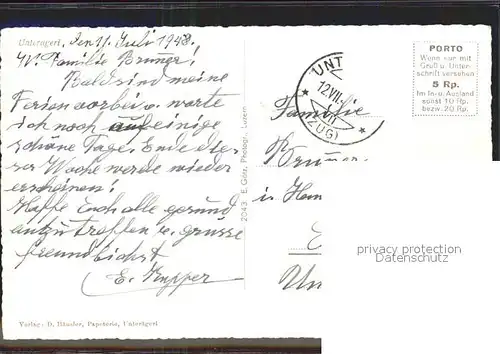 Unterägeri, den 11. Juli 1948.
W. Familie Brunner!
Bald sind meine
Ferien vorbei u. warte
ich noch auf einige
schöne Tage. Ende die-
ser Woche werde wieder
erscheinen!
Hoffe Euch alle gesund
anzutreffen u. grüsse
freundlichst
E. Kupper
Verlag: D. Häusler, Papeterie, Unterägeri
2043 E. Goetz, Photogr., Luzern
UNT
12.VII.
(ZUG)
PORTO
Wenn nur mit
Gruß u. Unter-
schrift versehen
5 Rp.
Im In- u. Ausland
sonst 10 Rp.
bezw. 20 Rp.
Familie
Brunner
in
privacy protection
Datenschutz